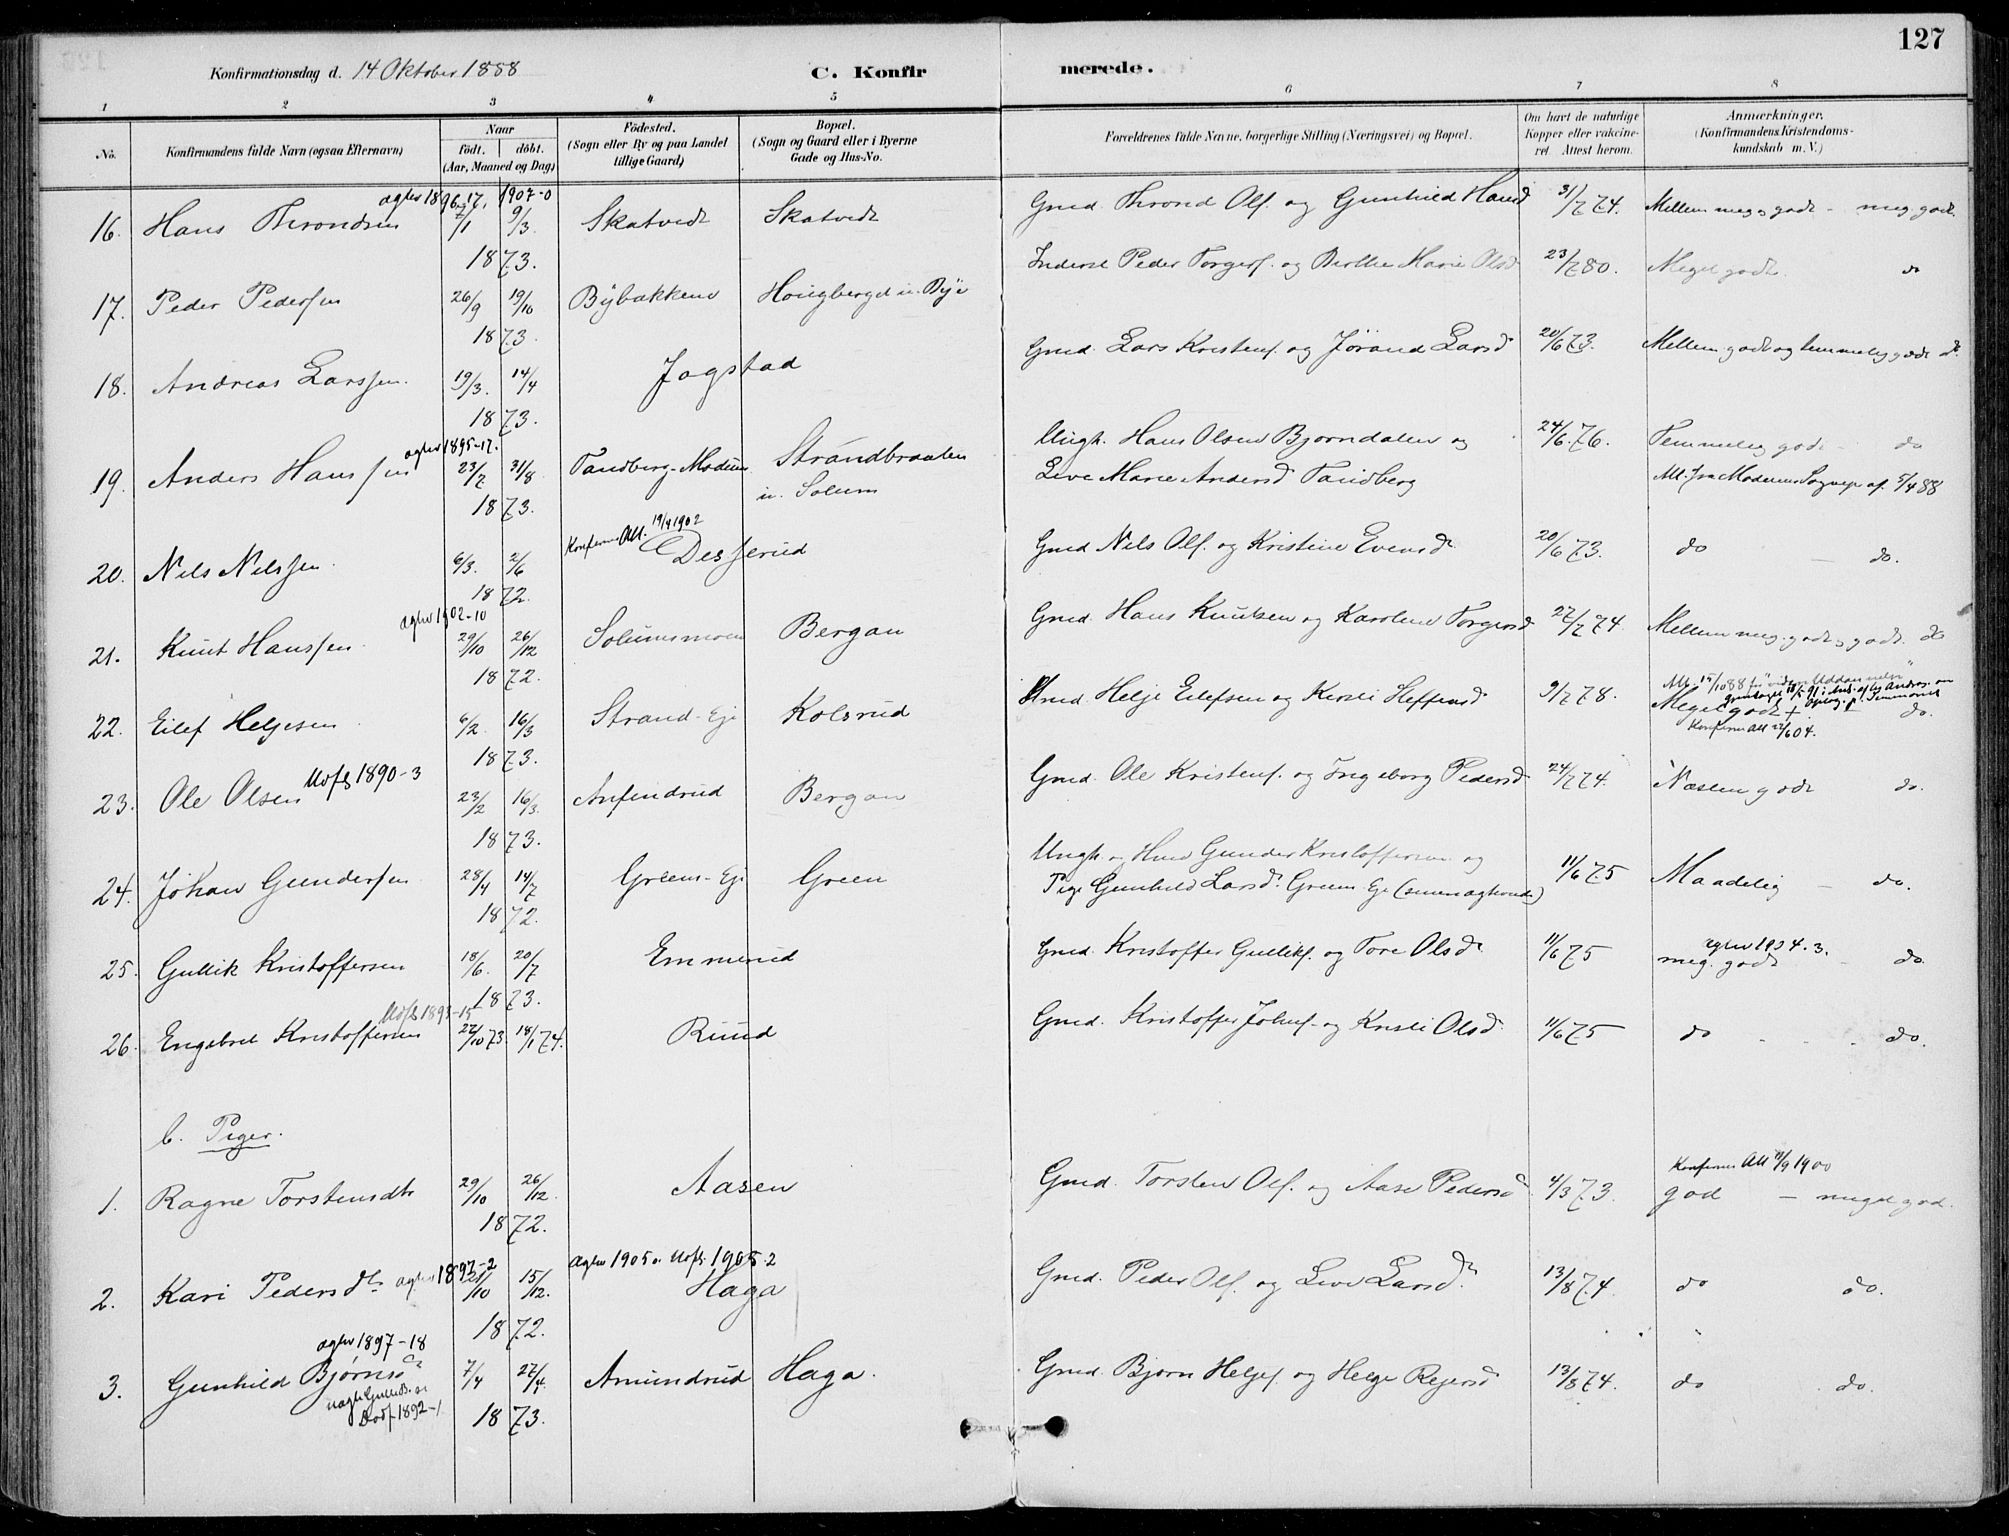 127
Konfirmationsdag d. 14 Oktober 1888 C. Konfirmerede.
1 2 3 4 5 6 7 8
No. Konfirmandens fulde Navn (ogsaa Efternavn) Naar födt. döbt. (Aar, Maaned og Dag) Födested. (Sogn eller By og paa Landet tillige Gaard) Bopæl. (Sogn og Gaard eller i Byerne Gade og Hus-No. Forældrenes fulde Navne, borgerlige Stilling (Næringsvei) og Bopæl. Om havt de naturlige Kopper eller vakcineret. Attest herom. Anmærkninger. (Konfirmandens Kristendomskundskab m. V.)
agtev 1896-17, 1907-0
16. Hans Throndsen 7/1 9/3. Skatvedt Skatvedt Gmd. Thrond Ols. og Gunhild Hansd 31/7 74. Mellem meg. og godt - meg. godt.
1873.
17. Peder Pedersen 26/9 19/10 Bybakken Hougberget u. Bye Inderst Peder Torgers. og Berthe Marie Olsd 23/7 80. Meget godt do
1873.
18. Andreas Larssen. 19/3. 14/4 Jogstad Gmd. Lars Kristens. og Jørand Larsd 20/6 73. Mellem godt og temmelig godt do.
1873.
agtev 1895-17.
19. Anders Hanssen 23/7 31/8 Tandberg-Modum Strandbraaten u. Solum Ungk. Hans Olsen Bjørndalen og 24/6 76. Temmelig godt - do
Live Marie Andersd Tandberg Att. fra Modums Sognepr. af 5/4 88
1873.
Konferm Att. 19/4 1902
20. Nils Nilssen. 6/3. 2/6 Desserud Gmd Nils Ols. og Kristine Evensd. 20/6 73. do - do.
1872.
agtev 1902-10
21. Knut Hanssen 29/10 26/12 Solumsmoen Bergan Gmd. Hans Knutsen og Karoline Torgersd 27/7 74. Mellem meg. godt og godt. do
1872.
22. Eilef Helgesen 6/2. 16/3 Strand-Eje Kolsrud Helje Eilefsen og Kirsti Steffensd 9/7 78. Att. 15/10 88
Meget godt + - do.
Konferm Att 22/6 04.
1873.
23. Ole Olsen Udfl. 1890-3 23/2 16/3 Anfindrud Bergan Gmd. Ole Kristens. og Ingeborg Pedersd 24/7 74. Næsten godt do.
1873.
24. Johan Gundersen 28/4 14/7 Greens-Eje Green Ungk. og Gunder Kristoffersen og
Pige Gunhild Larsd. Greens Eje 11/6 75 Maadelig - do.
1872.
25. Gullik Kristoffersen 18/6. 20/7 Emmerud Gmd. Kristoffer Gulliks. og Tore Olsd 11/6 75 agtev 1904. 3.
meg. godt - do.
1873.
Udfl. 1893-15
26. Engebret Kristoffersen 27/10 73. 18/1 74. Ruud Gmd. Kristoffer Johns. og Kirsti Olsd. 11/6 75 do do.
b. Piger.
Konferm Att 11/9 1900
1. Ragne Torstensdtr 29/10 26/12. Aasen Gmd. Torsten Ols. og Aase Pedersd 4/3 73. god - meget god.
1872.
agtev 1905 Udfl. 1905-2
2. Kari Pedersdtr agtev 1897-2 21/10 15/12. Haga Gmd. Peder Ols. og Live Larsd. 13/8 74. do do.
1872.
agtev 1897-18
3. Gunhild Bjørnsd 7/4 27/4. Amundrud Haga. Gmd. Bjørn Heljes. og Helge Rejersd 13/8 74. do do.
1892-1
1873.